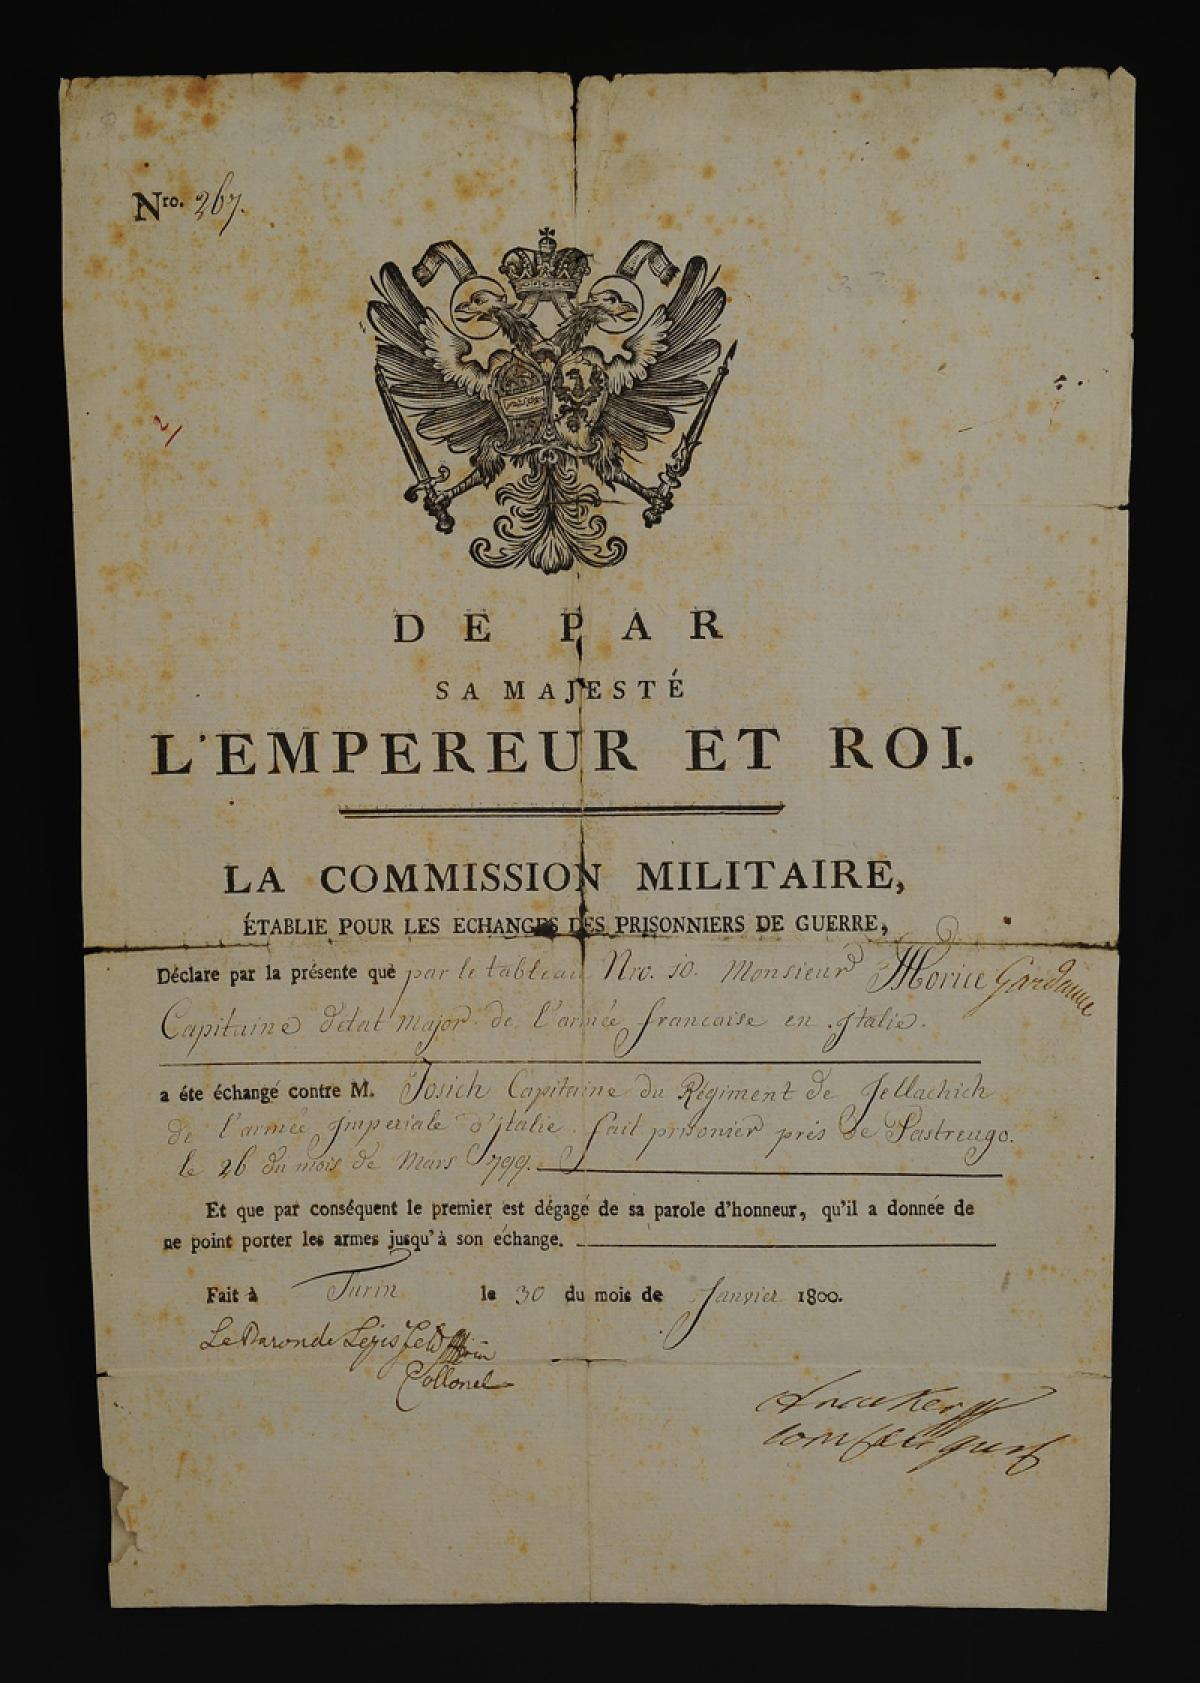 Nro. 267.
DE PAR
SA MAJESTÉ
L'EMPEREUR ET ROI.
LA COMMISSION MILITAIRE,
ÉTABLIE POUR LES ECHANGES DES PRISONNIERS DE GUERRE,
Déclare par la présente que par le tableau Nro. 10. Monsieur Morice Gardanne
Capitaine d'état major de l'armée francaise en Italie.
a éte échangé contre M. Josich Capitaine du Régiment de Jellachich
de l'armée Imperiale d'Italie. fait prisonier prés de Pastrengo.
le 26 du mois de Mars 799.
Et que par conséquent le premier est dégagé de sa parole d'honneur, qu'il a donnée de
ne point porter les armes jusqu'à son échange.
Fait à Turin le 30 du mois de Janvier 1800.
Le Baron de
Collonel